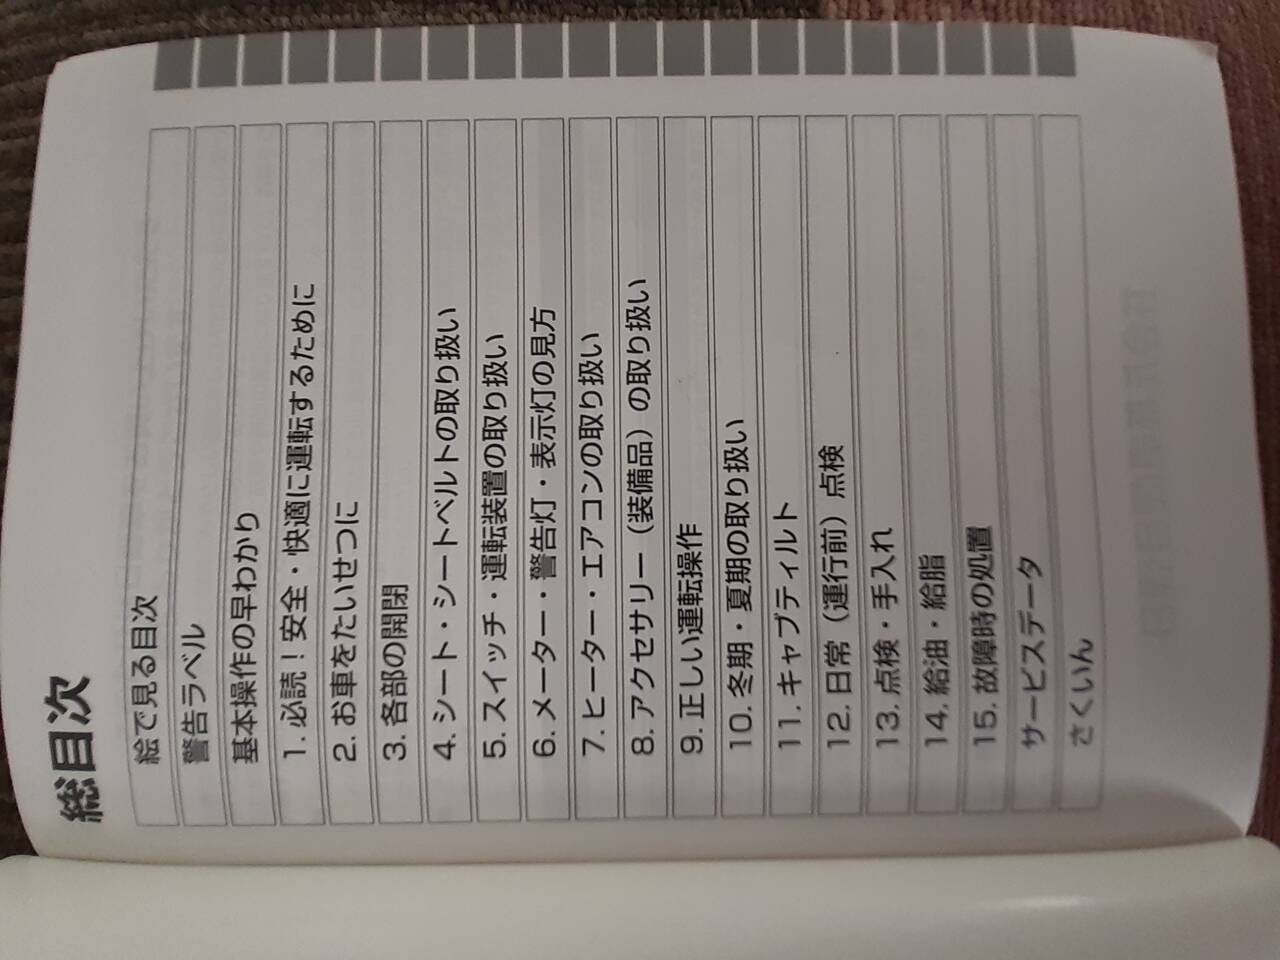 総目次
絵で見る目次
警告ラベル
基本操作の早わかり
1. 必読！安全・快適に運転するために
2. お車をたいせつに
3. 各部の開閉
4. シート・シートベルトの取り扱い
5. スイッチ・運転装置の取り扱い
6. メーター・警告灯・表示灯の見方
7. ヒーター・エアコンの取り扱い
8. アクセサリー（装備品）の取り扱い
9. 正しい運転操作
10. 冬期・夏期の取り扱い
11. キャブティルト
12. 日常（運行前）点検
13. 点検・手入れ
14. 給油・給脂
15. 故障時の処置
サービスデータ
さくいん